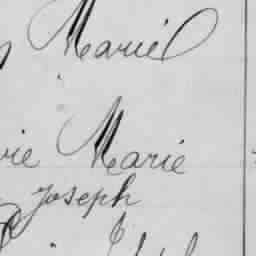 Mariel
vie Marie
Joseph